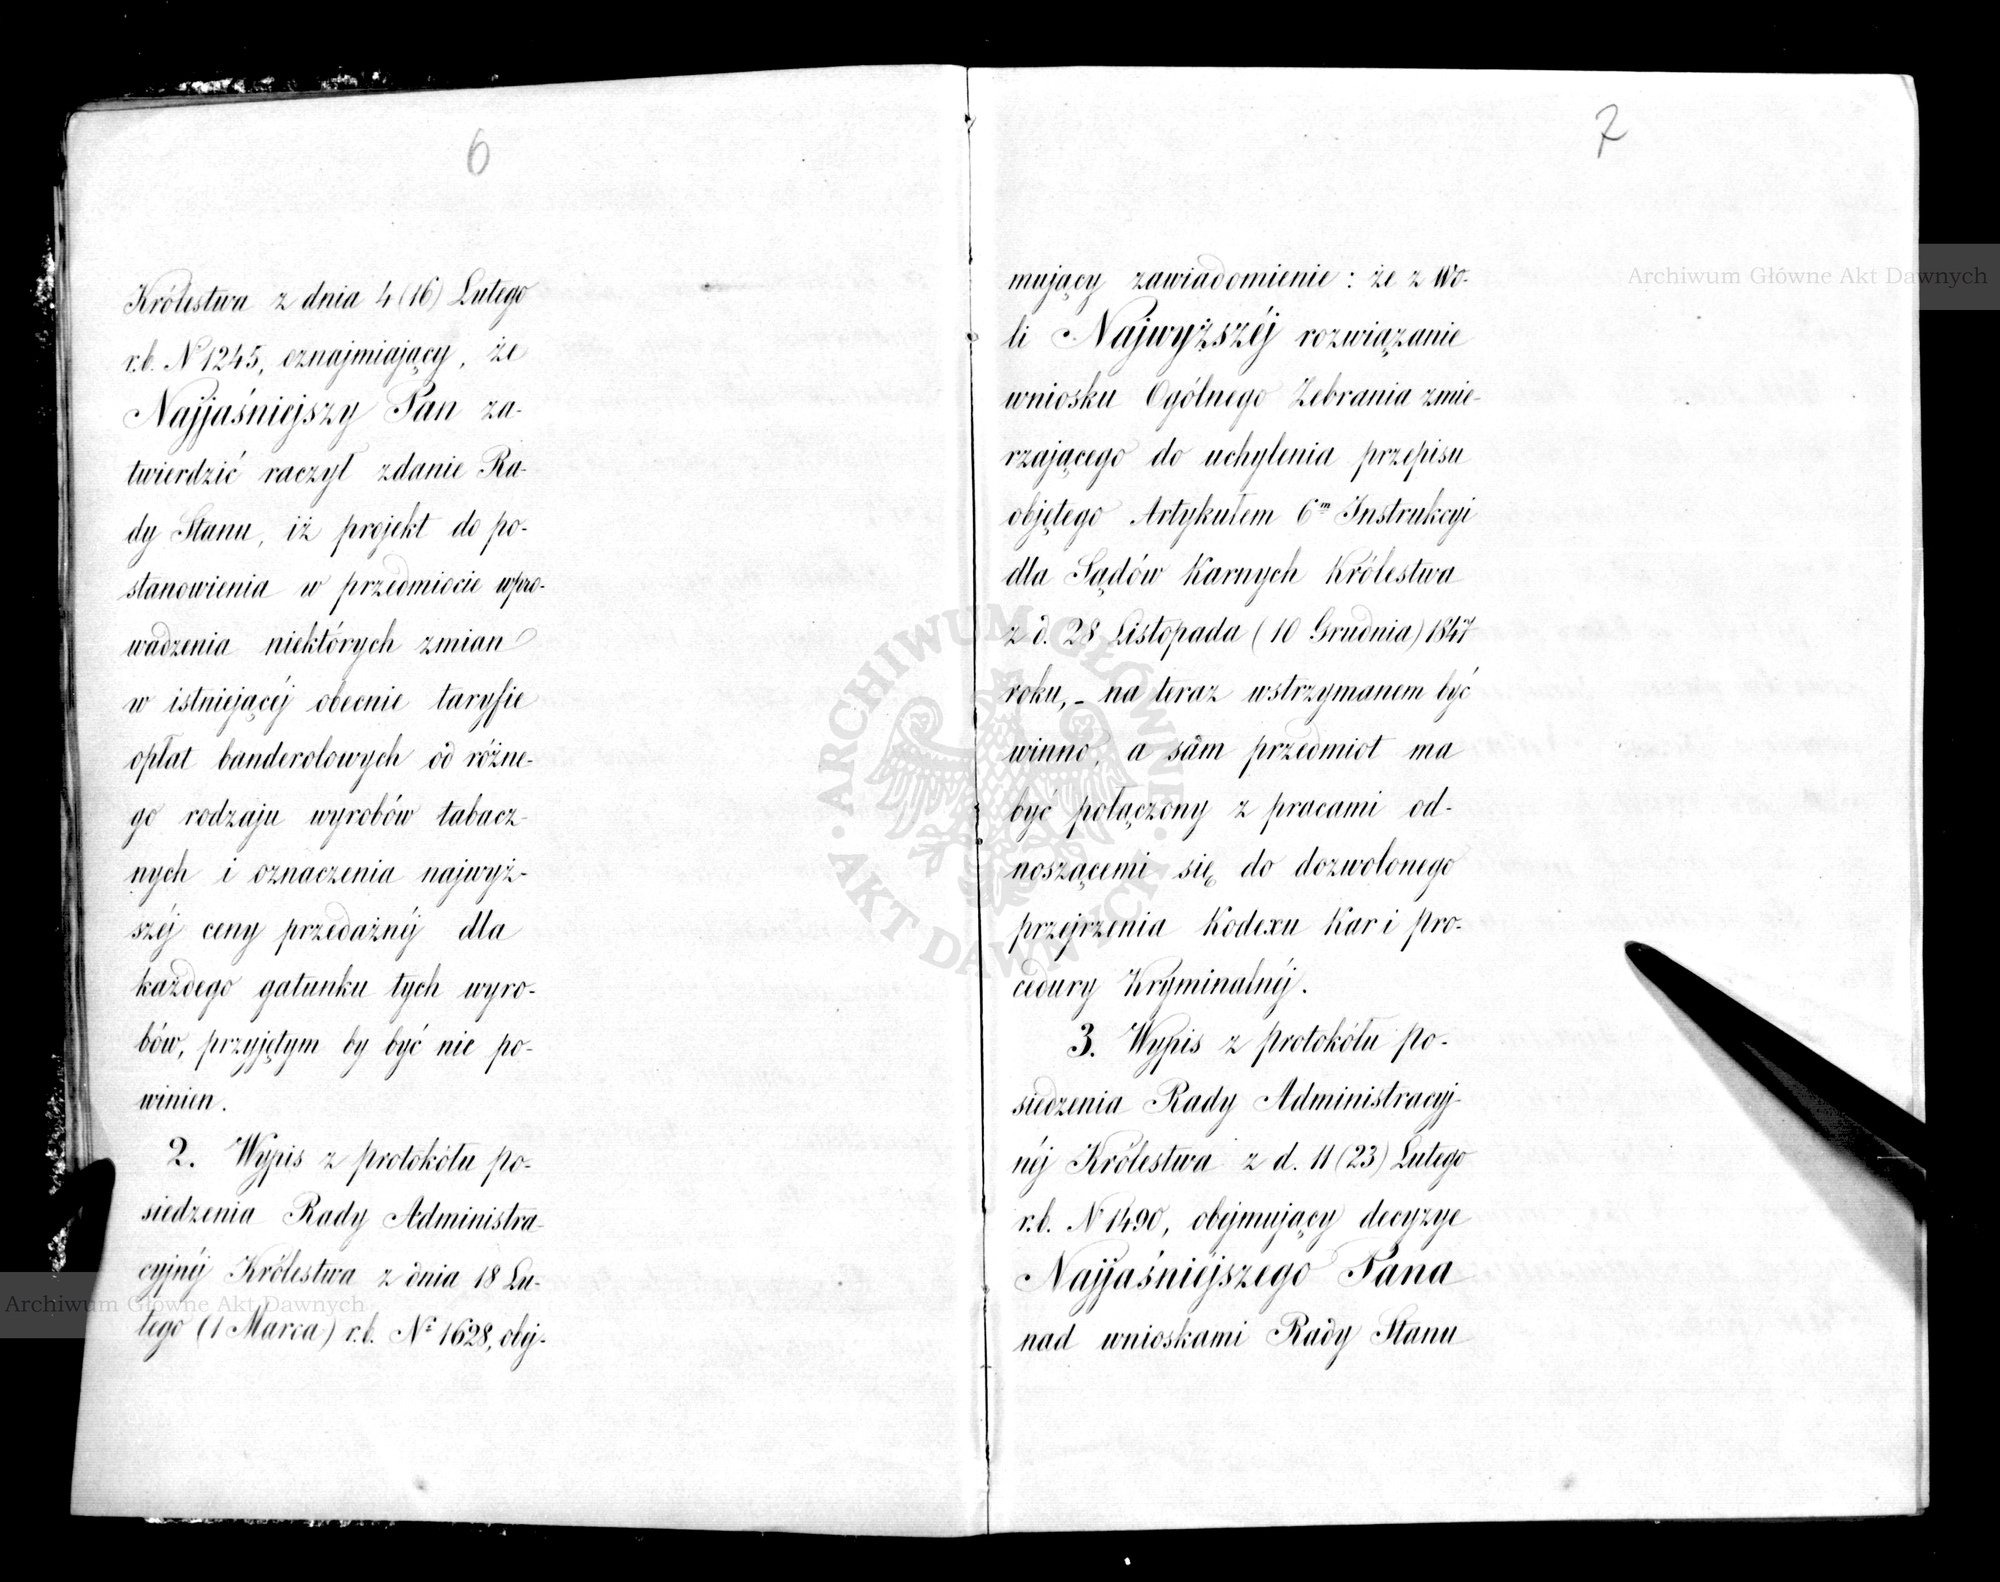 6
Królestwa z dnia 4 (16) Lutego
r.b. N 1245, oznajmiający, że
Najjaśniejszy Pan za-
twierdzić raczył zdanie Ra-
dy Stanu, iż projekt do po-
stanowienia w przedmiocie wpro-
wadzenia niektórych zmian
w istniejącéj obecnie taryfie
opłat banderolowych od różne-
go rodzaju wyrobów tabacz-
nych i oznaczenia najwyż-
széj ceny przedażnéj dla
każdego gatunku tych wyro-
bów, przyjętym by być nie po-
winien.
2. Wypis z protokółu po-
siedzenia Rady Administra-
cyjnéj Królestwa z dnia 18 Lu-
tego (1 Marca) r.b. Nr 1628, obej-
7
mujący zawiadomienie: że z wo-
li Najwyższéj rozwiązanie
wniosku Ogólnego Zebrania zmie-
rzającego do uchylenia przepisu
objętego Artykułem 6m Instrukcyi
dla Sądów Karnych Królestwa
z d. 28 Listopada (10 Grudnia) 1847
roku, - na teraz wstrzymanem być
winno, a sam przedmiot ma
być połączony z pracami od-
noszącemi się do dozwolonego
przejrzenia Kodexu Kar i pro-
cedury Kryminalnéj.
3. Wypis z protokółu po-
siedzenia Rady Administracyj-
néj Królestwa z d. 11 (23) Lutego
r.b. N 1490, obejmujący decyzye
Najjaśniéjszego Pana
nad wnioskami Rady Stanu
Archiwum Główne Akt Dawnych
Archiwum Główne Akt Dawnych
ARCHIWUM GŁÓWNE AKT DAWNYCH